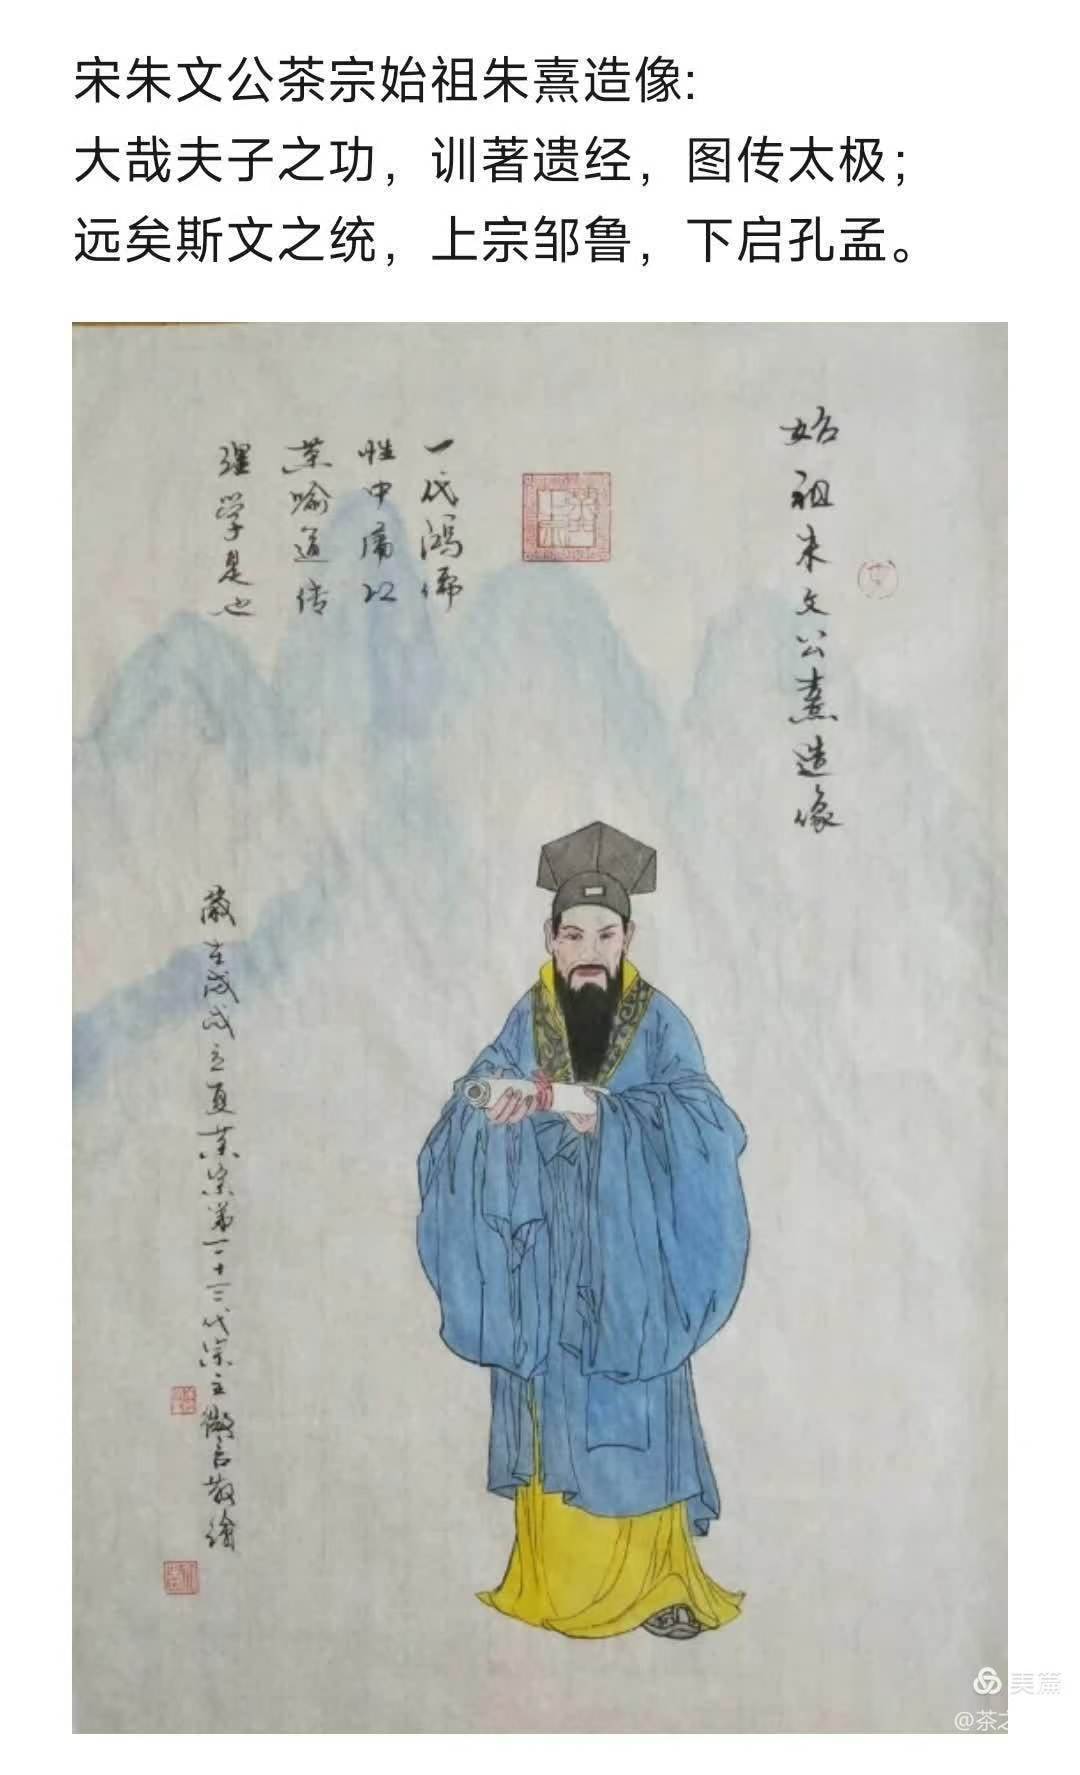 宋朱文公茶宗始祖朱熹造像:
大哉夫子之功，训著遗经，图传太极；
远矣斯文之统，上宗邹鲁，下启孔孟。
始祖朱文公熹造像
一代鸿儒
性中庸以
茶喻道传
理学是也
岁在戊戌立夏茶宗第二十三代宗主微言敬绘
美篇
@茶之